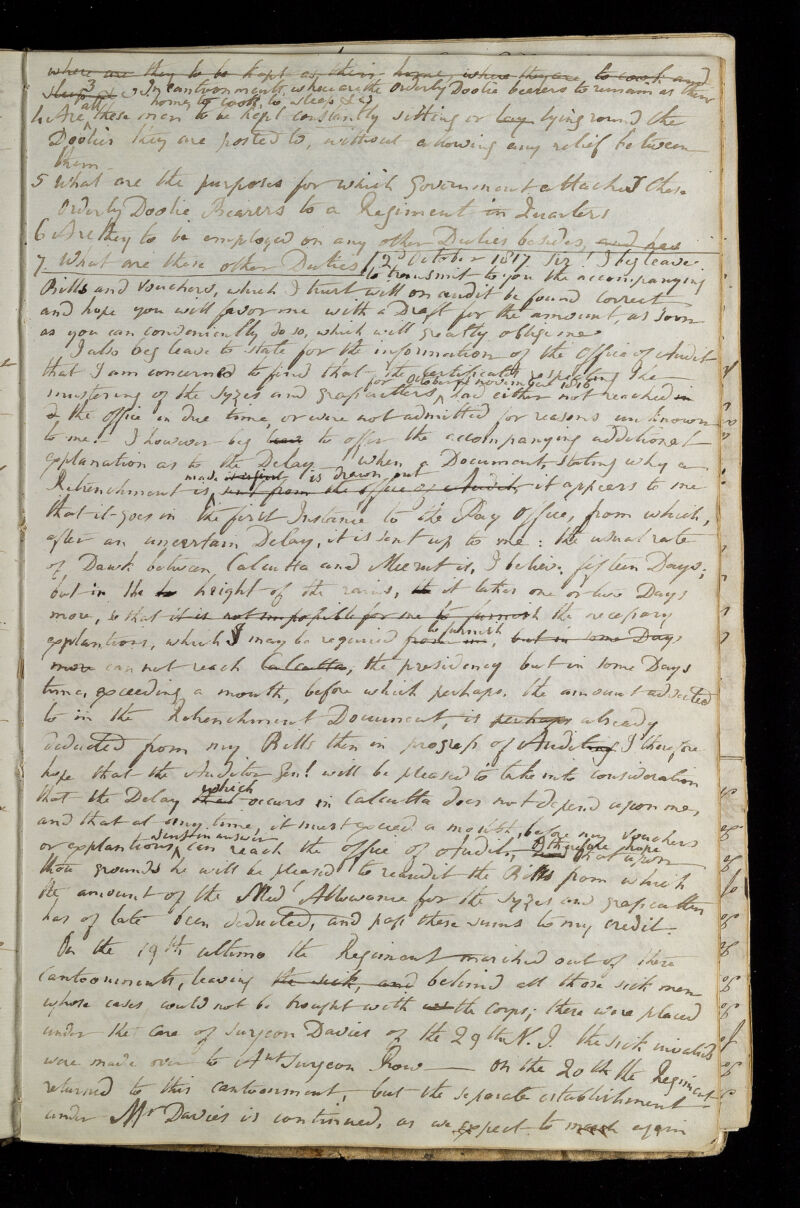 where are they to be kept as their home, where they are, to cook and
sleep &c 3 In cantoonments, where are the Orderly Doolie bearers to remain as their
home, to cook, to sleep &c
4 Are all these men to be kept constantly sitting or lay lying round the
Doolies they are posted to, without allowing any relief between
them
5 What are the purposes for which Government attaches these
Orderly Doolie Bearers to a Regiment in Quarters
6 Are they to be employed on any other Duties besides, and has
7 What are these other Duties / 2d October 1817 Sir! I beg leave
to transmit to you the accompanying
Bills and vouchers, which I trust will on audit be found correct
and hope you will favor me with a Draft for the amount, as soon
as you can conveniently do so, which will greatly oblige me
I also beg leave to state for the information of the Office of Audit
that I am concerned to find that the certificates respecting the
for October & november 1816
mustering of the syzes and grasscutters had either not reached in
the office in due time or were not admitted for reasons unknown
to me.— I however beg leave to offer the accompanying additional
explanation as to the Delay — When a Document, stating why a
Retrenchment is made is drawn out sent from the office of Audit, it appears to me
that it goes in the first Instance to the Pay Office, from which,
after an uncertain Delay, it is sent up to me: the usual rate
of Dawk between Calcutta and Meerut is, I believe, fifteen Days;
but in the height of the rains, it takes one or two Days
more, so that it is not impossible for me to furnish the necessary
explantions, which I may be required to furnish, but in some Days
more can not reach Calcutta, the presidency but in some Days
time, exceeding a month, before which perhaps, the amount adverted
to in the Retrenchment Document, is perhaps already
deducted from my Bills then in progress of Auditing I therefore
hope that the Auditor Genl. will be pleased to take into consideration
that the Delay which occurs in Calcutta does not depend upon me,
and that at any time, it must exceed a month, before my vouchers
or explantions, sent in answer can reach the office of Audit, I therefore hope that upon
these grounds he will be pleased to reaudit the Bills from which
the amount of the Medl Allowance for the syzes and grasscutters
has of late been deducted, and pass these sums to my credit.—
On the 19th ultimo the Regiment marched out of these
Cantoonments, leaving the sick, and behind all those sick men
whose cases could not be brought with the corps; these were placed
under the care of Surgeon Davies of the 29th N. I. the sick invalids
were made over to Asst Surgeon — On the 20th the Regiment
returned to this cantoonment, but the separate establishment
under Mr Davies is continued, as we expect to march again